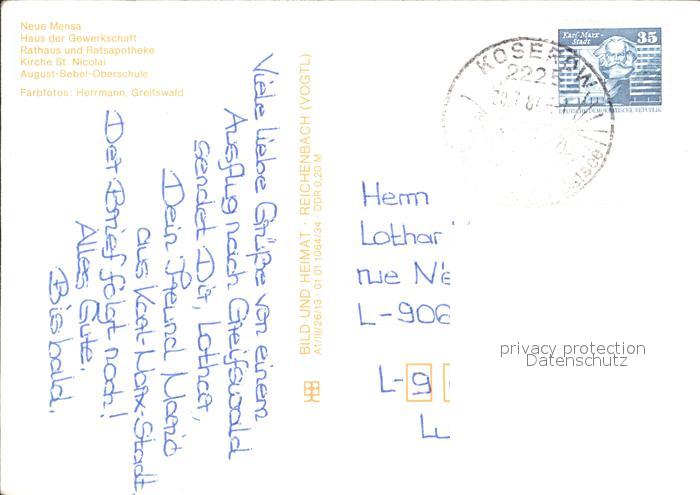 Neue Mensa
Haus der Gewerkschaft
Rathaus und Ratsapotheke
Kirche St. Nicolai
August-Bebel-Oberschule
Farbfotos: Herrmann, Greifswald
Viele liebe Grüße von einem
Ausflug nach Greifswald
sendet Dir, Lothar,
Dein Freund Mario
aus Karl-Marx-Stadt.
Der Brief folgt noch!
Alles Gute.
Bis bald.
BILD UND HEIMAT · REICHENBACH (VOGTL)
A1/III/26/13 · 01 01 1064/34 · DDR 0,20 M
KOSEROW
2225
Karl-Marx-
Stadt
35
DEUTSCHE DEMOKRATISCHE REPUBLIK
Herrn
Lothar
rue
L-906
L-9
privacy protection
Datenschutz